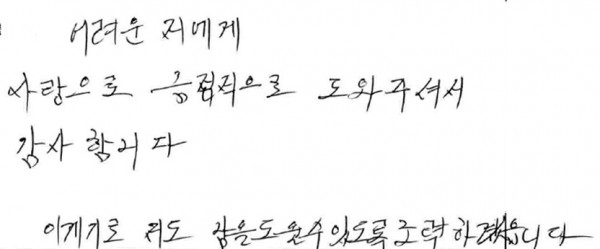 어려운 저에게
사랑으로 긍정적으로 도와주셔서
감사 합니다
이계기로 저도 남을도울수있도록노력하겠습니다